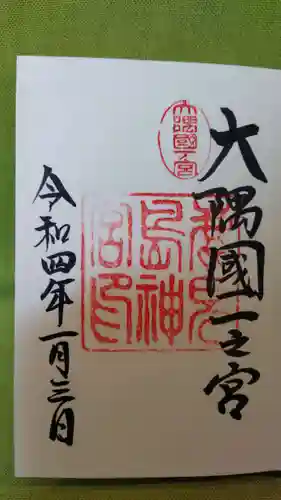 大隅國一之宮
大隅國一宮
鹿児島神宮印
令和四年一月三日